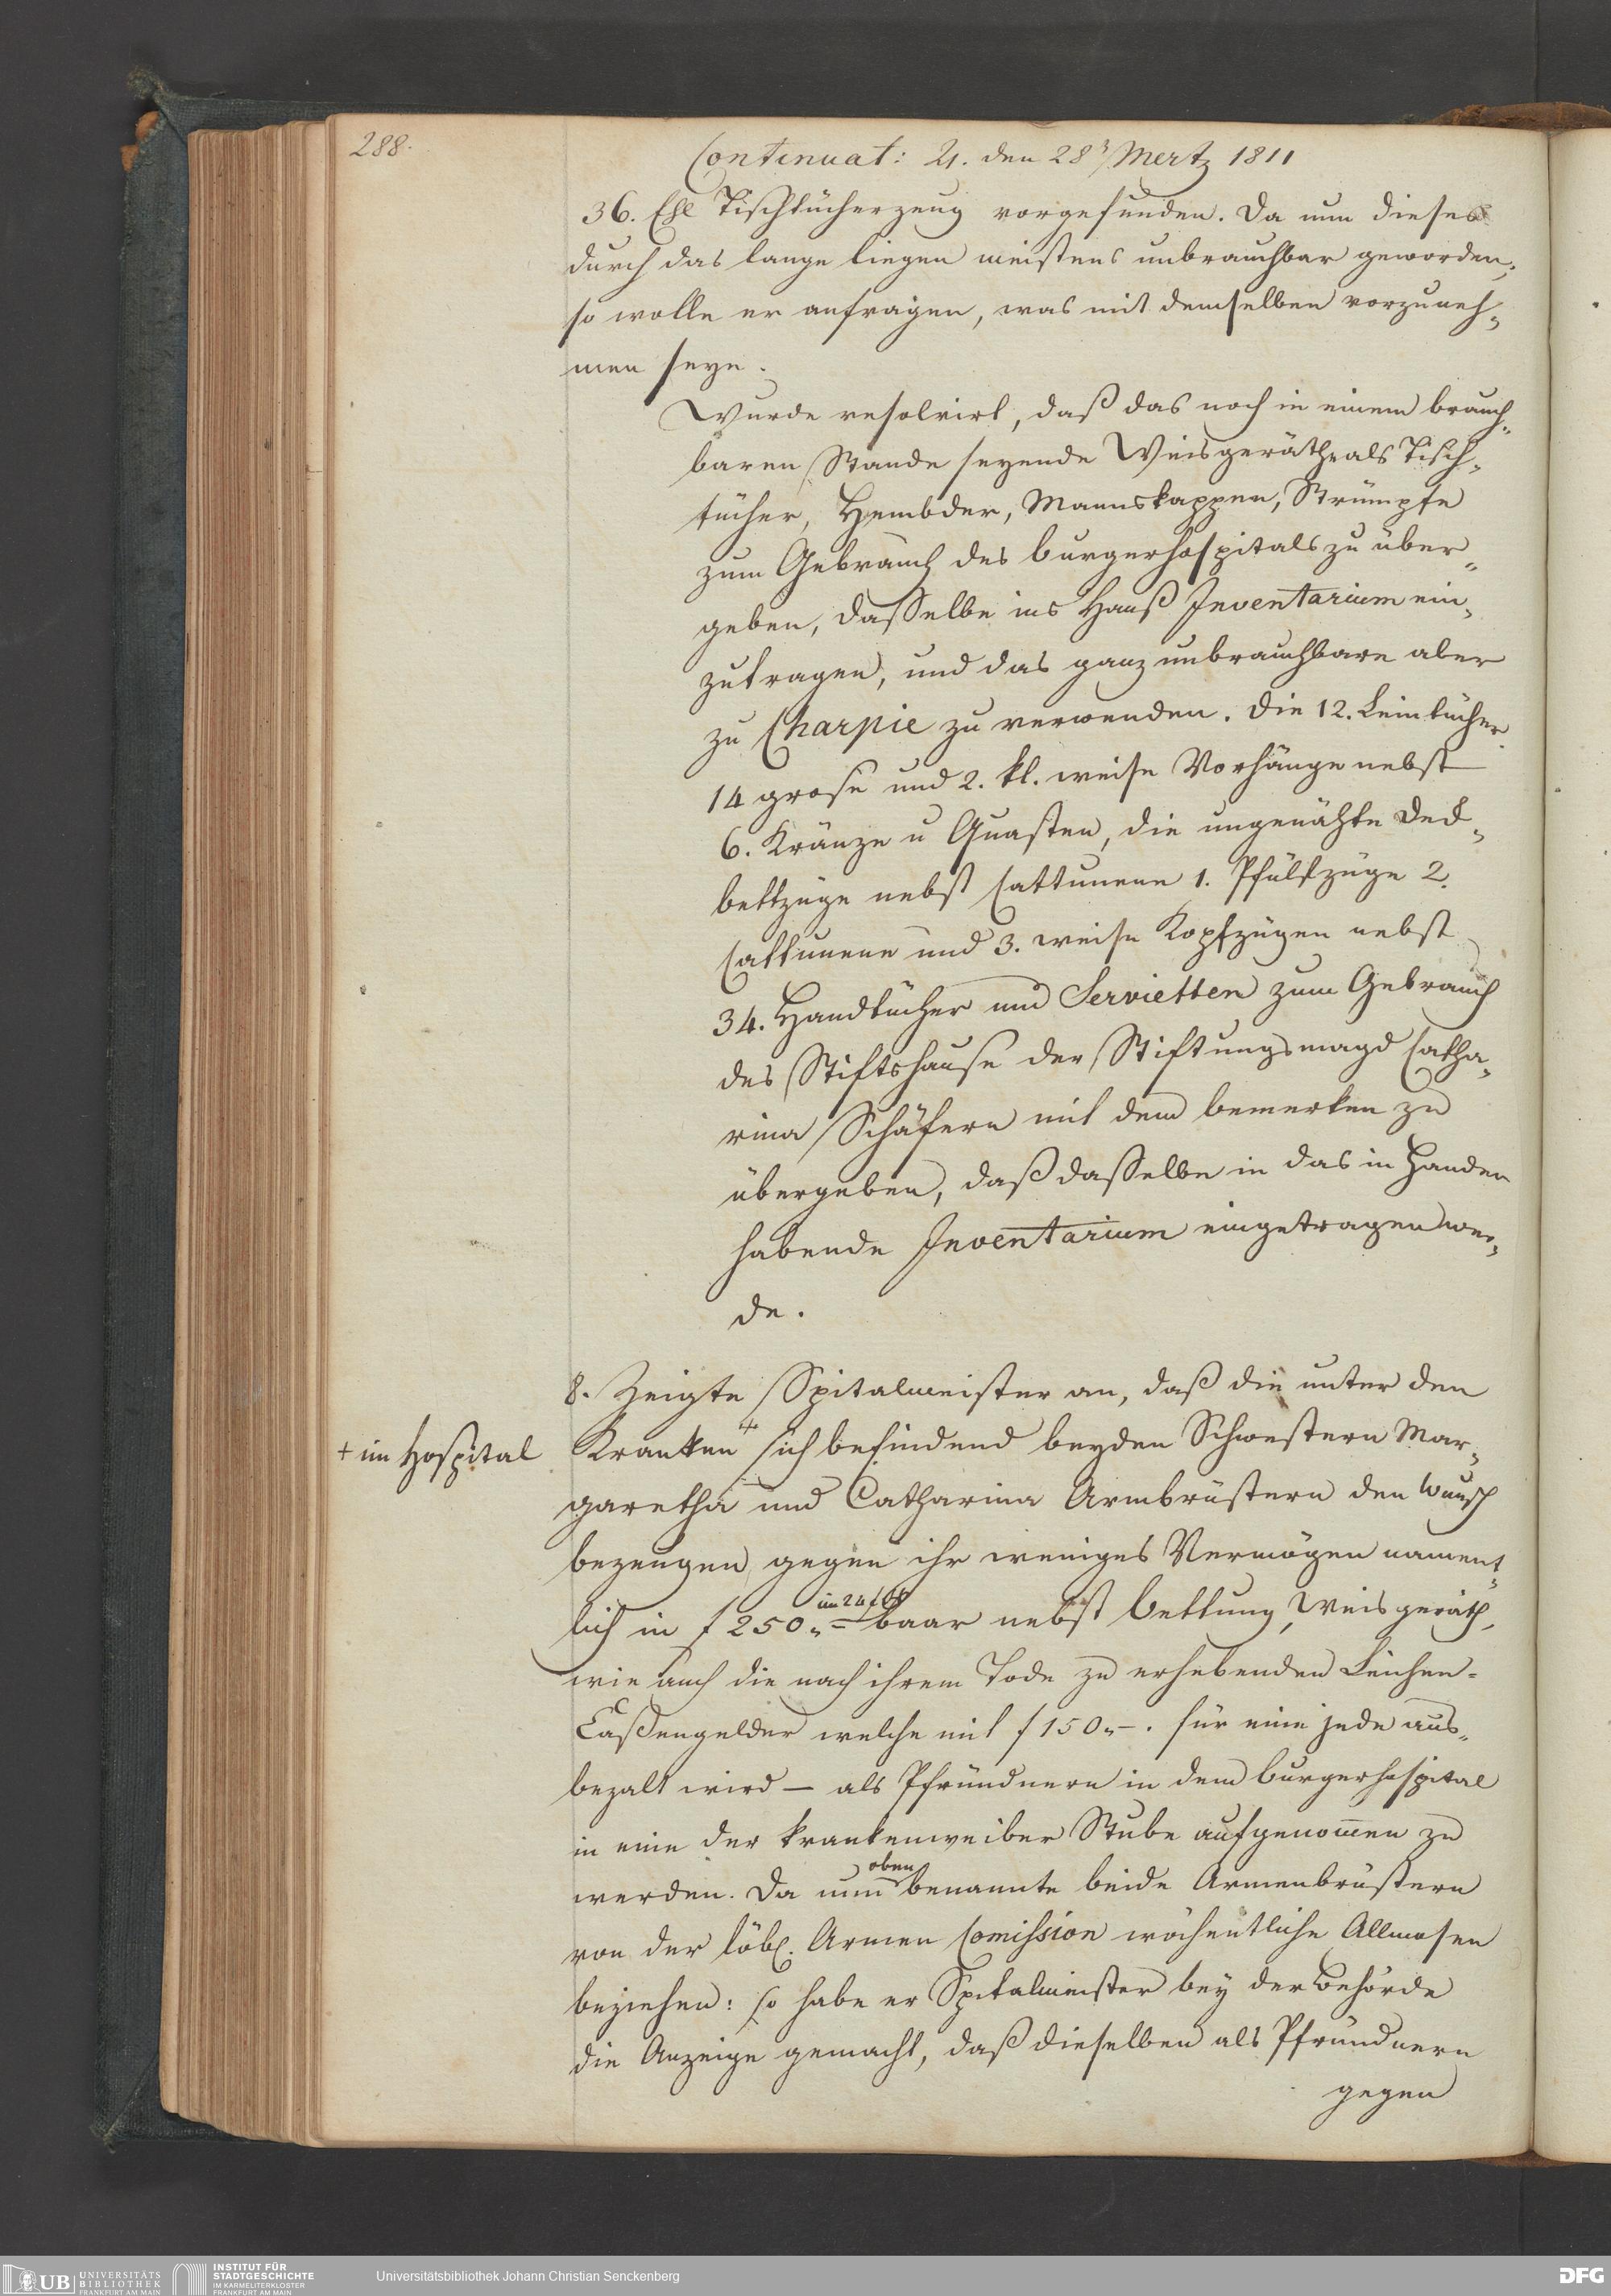 288.
Continuat: 4. den 28 Mertz 1811
36. Ehl Tischtücherzeug vorgefunden. Da nun dieses
durch das lange liegen meistens unbrauchbar geworden;
so wolle er anfragen, was mit demselben vorzuneh-
men seye.
Wurde resolvirt, daß das noch in einem brauch-
baren Stande seyende Weisgeräthe als Tisch-
tücher, Hembder, Mannskappen, Strümpfe
zum Gebrauch des burgerhospitals zu über-
geben, dasselbe ins Hauß Inventarium ein-
zutragen, und das ganz unbrauchbare aber
zu Charpie zu verwenden. Die 12. Leintücher
14 grose und 2. kl. weise Vorhänge nebst
6. Kränze u Quasten, die ungenähte Deck-
bettzüge nebst Cattunene 1. Pfülfzüge 2.
Cattunene und 3. weise Kopfzügen nebst
34. Handtücher und Servietten zum Gebrauch
des Stiftshause der Stiftungsmagd Catha-
rina Schäfern mit dem bemerken zu
übergeben, daß dasselbe in das in Handen
habende Inventarium eingetragen wer-
de.
8. Zeigte Spitalmeister an, daß die unter den
+ im Hospital
Kranken + sich befindend beyden Schwestern Mar-
garetha und Catharina Armbrüstern den Wunsch
bezeugen gegen ihr weniges Vermögen nament-
im 24 f
lich in f 250.- baar nebst bettung, Weisgeräth,
wie auch die nach ihrem Tode zu erhebenden Leichen-
Caßengelder welche mit f 150.-. für eine jede aus-
bezalt wird — als Pfründnern in dem burgerhospital
in eine der krankenweiber Stube aufgenommen zu
oben
werden. Da nun benannte beide Armenbrüstern
von der löbl. Armen Comission wöchentliche Allmosen
beziehen: so habe er Spitalmeister bey der Behörde
die Anzeige gemacht, daß dieselben als Pfründnern
gegen
UB UNIVERSITÄTS
BIBLIOTHEK
FRANKFURT AM MAIN
INSTITUT FÜR
STADTGESCHICHTE
IM KARMELITERKLOSTER
FRANKFURT AM MAIN
Universitätsbibliothek Johann Christian Senckenberg
DFG